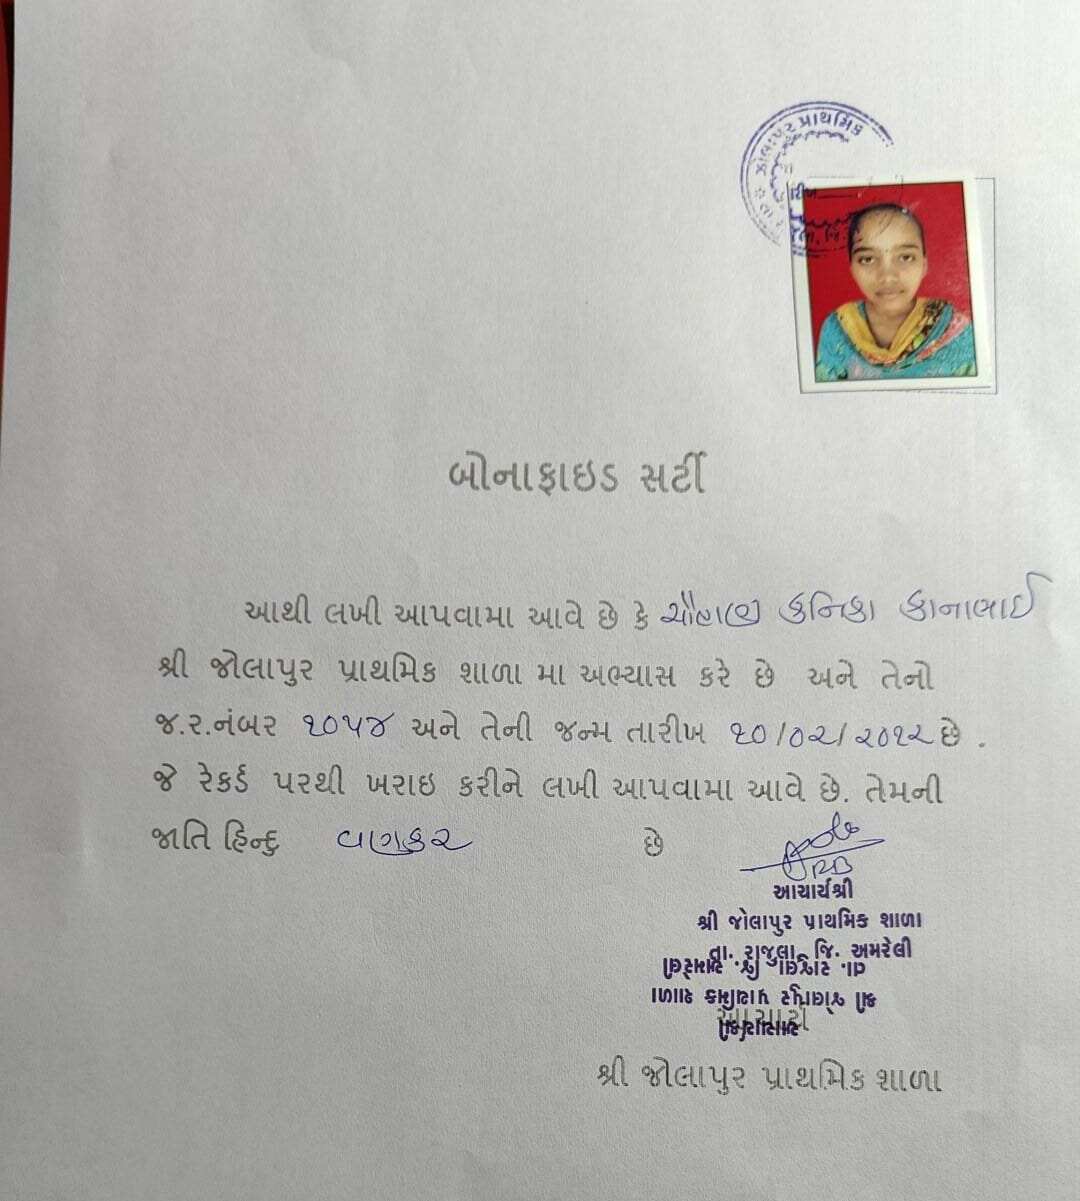 જોલાપુર પ્રાથમિક
બોનાફાઇડ સર્ટી
આથી લખી આપવામા આવે છે કે ચૌહાણ કનિકા કાનાભાઈ
શ્રી જોલાપુર પ્રાથમિક શાળા મા અભ્યાસ કરે છે અને તેનો
જ.ર.નંબર ૧૦૫૪ અને તેની જન્મ તારીખ ૧૦/૦૨/૨૦૧૨ છે .
જે રેકર્ડ પરથી ખરાઇ કરીને લખી આપવામા આવે છે. તેમની
જાતિ હિન્દુ વણકર છે
આચાર્યશ્રી
શ્રી જોલાપુર પ્રાથમિક શાળા
તા. રાજુલા, જિ. અમરેલી
તા. રાજુલા, જિ. અમરેલી
શ્રી જોલાપુર પ્રાથમિક શાળા
આચાર્યશ્રી
શ્રી જોલાપુર પ્રાથમિક શાળા